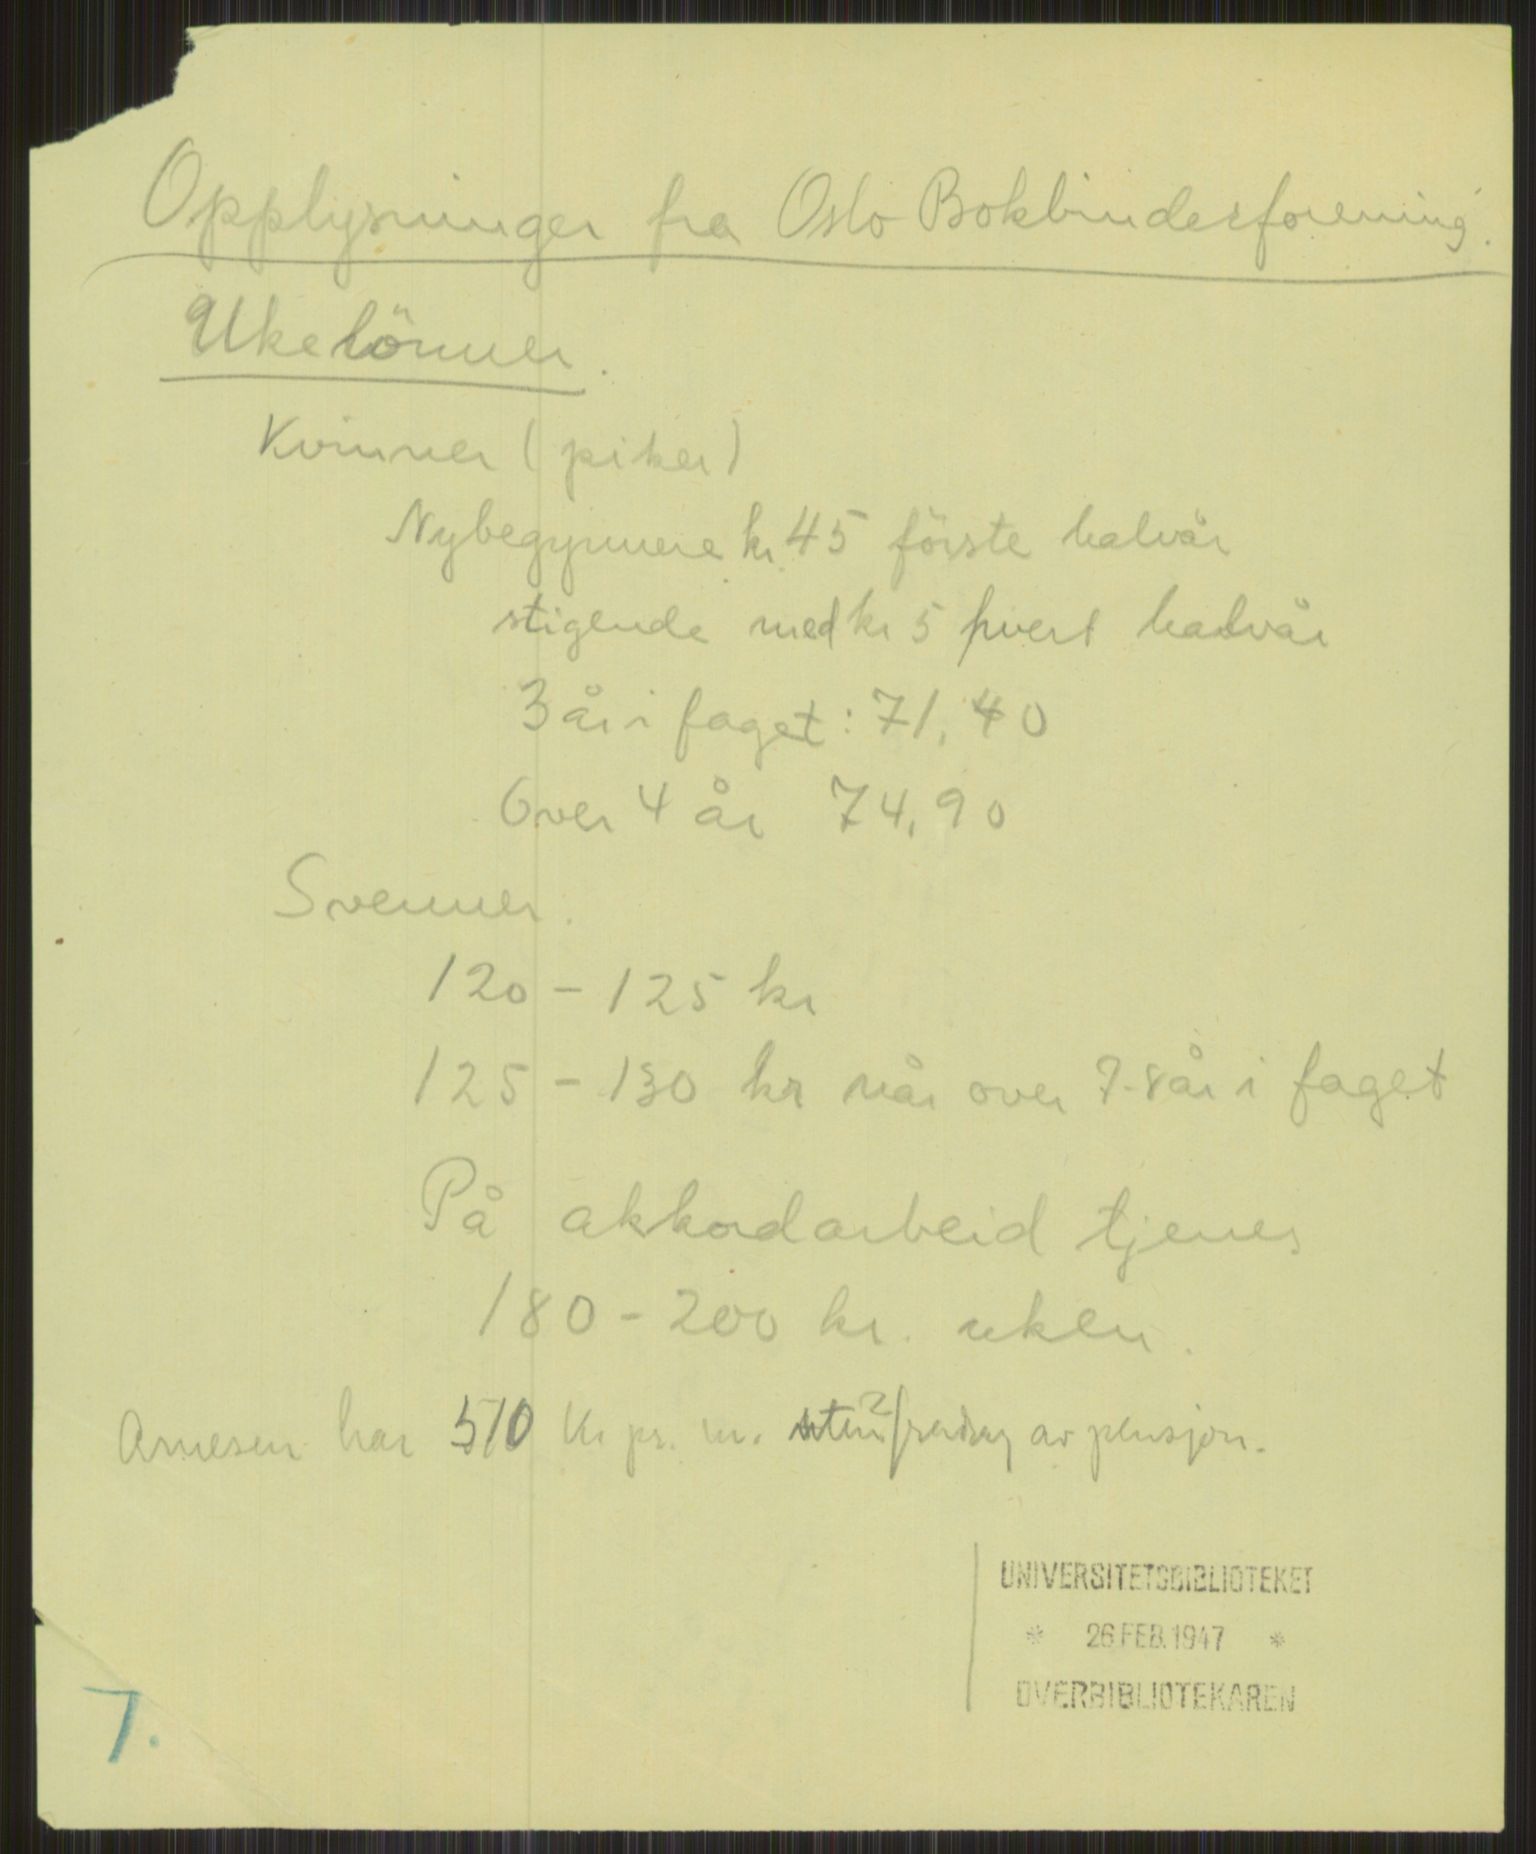 Opplysninger fra Oslo Bokbinderforening.
Ukelönner.
Kvinner (piker)
Nybegynnere kr. 45 förste halvår
stigende med kr 5 hvert halvår
3 år i faget: 71,40
Over 4 år 74,90
Svenner.
120 - 125 kr
125 - 130 kr når over 7-8 år i faget
På akkordarbeid tjenes
180 - 200 kr. uken.
Arnesen har 510 Kr pr. m. uten? fradrag av pensjon.
UNIVERSITETSBIBLIOTEKET
* 26 FEB. 1947 *
OVERBIBLIOTEKAREN
7.